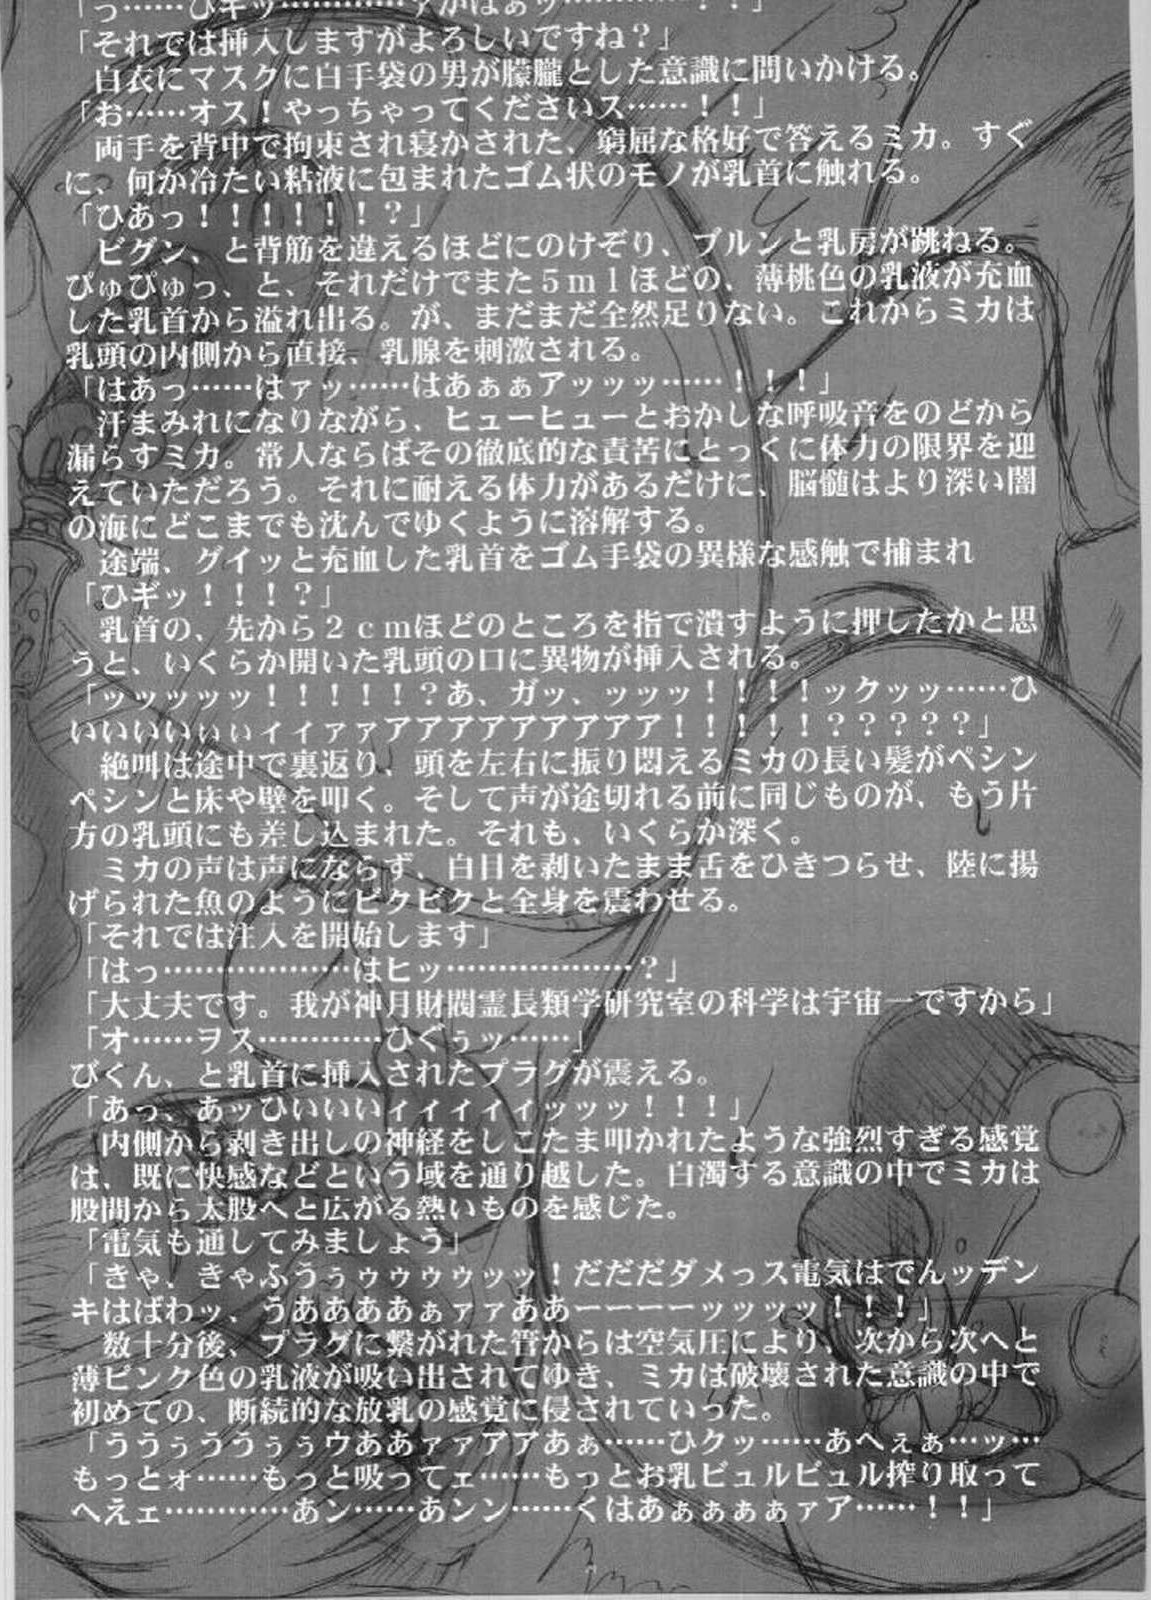 「それでは挿入しますがよろしいですね？」
白衣にマスクに白手袋の男が朦朧とした意識に問いかける。
「お……オス！やっちゃってくださいス……！！」
両手を背中で拘束され寝かされた、窮屈な格好で答えるミカ。すぐ
に、何か冷たい粘液に包まれたゴム状のモノが乳首に触れる。
「ひあっ！！！！！！！？」
ビグン、と背筋を違えるほどにのけぞり、ブルンと乳房が跳ねる。
ぴゅぴゅっ、と、それだけでまた５ｍｌほどの、薄桃色の乳液が充血
した乳首から溢れ出る。が、まだまだ全然足りない。これからミカは
乳頭の内側から直接、乳腺を刺激される。
「はあっ……はァッ……はあぁぁアッッッ……！！！」
汗まみれになりながら、ヒューヒューとおかしな呼吸音をのどから
漏らすミカ。常人ならばその徹底的な責苦にとっくに体力の限界を迎
えていただろう。それに耐える体力があるだけに、脳髄はより深い闇
の海にどこまでも沈んでゆくように溶解する。
途端、グイッと充血した乳首をゴム手袋の異様な感触で捕まれ
「ひギッ！！！？」
乳首の、先から２ｃｍほどのところを指で潰すように押したかと思
うと、いくらか開いた乳頭の口に異物が挿入される。
「ッッッッッ！！！！！？あ、ガッ、ッッッ！！！！ックッッ……ひ
いいいいぃぃィィァァアアアアアアアアア！！！！！？？？？？」
絶叫は途中で裏返り、頭を左右に振り悶えるミカの長い髪がペシン
ペシンと床や壁を叩く。そして声が途切れる前に同じものが、もう片
方の乳頭にも差し込まれた。それも、いくらか深く。
ミカの声は声にならず、白目を剥いたまま舌をひきつらせ、陸に揚
げられた魚のようにビクビクと全身を震わせる。
「それでは注入を開始します」
「はっ…………………はヒッ…………………？」
「大丈夫です。我が神月財閥霊長類学研究室の科学は宇宙一ですから」
「オ……ヲス…………ひぐぅッ……」
びくん、と乳首に挿入されたプラグが震える。
「あっ、あッひいいいィィィィィッッッ！！！」
内側から剥き出しの神経をしこたま叩かれたような強烈すぎる感覚
は、既に快感などという域を通り越した。白濁する意識の中でミカは
股間から太股へと広がる熱いものを感じた。
「電気も通してみましょう」
「きゃ、きゃふうぅゥゥゥゥッッ！だだだダメっス電気はでんッデン
キはばわッ、うあああああぁァァああーーーーッッッッ！！！」
数十分後、プラグに繋がれた管からは空気圧により、次から次へと
薄ピンク色の乳液が吸い出されてゆき、ミカは破壊された意識の中で
初めての、断続的な放乳の感覚に侵されていった。
「ううぅううぅぅウああァァアアあぁ……ひクッ……あへぇぁ…ッ…
もっとォ……もっと吸ってェ……もっとお乳ビュルビュル搾り取って
へえェ…………あン……あンン……くはあぁぁぁぁァア……！！」